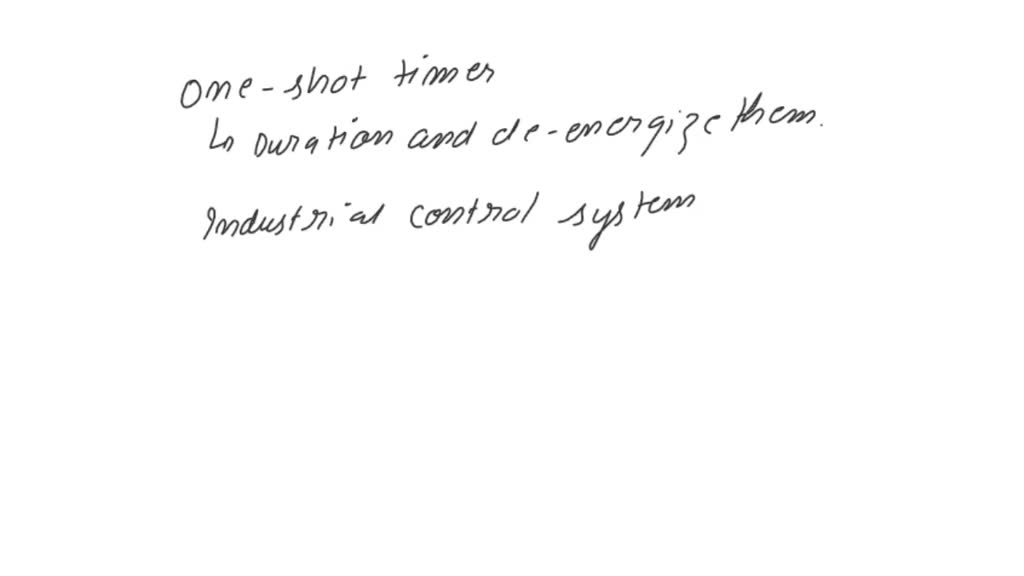 one-shot timer
↳ Duration and de-energize them.
Industrial control system